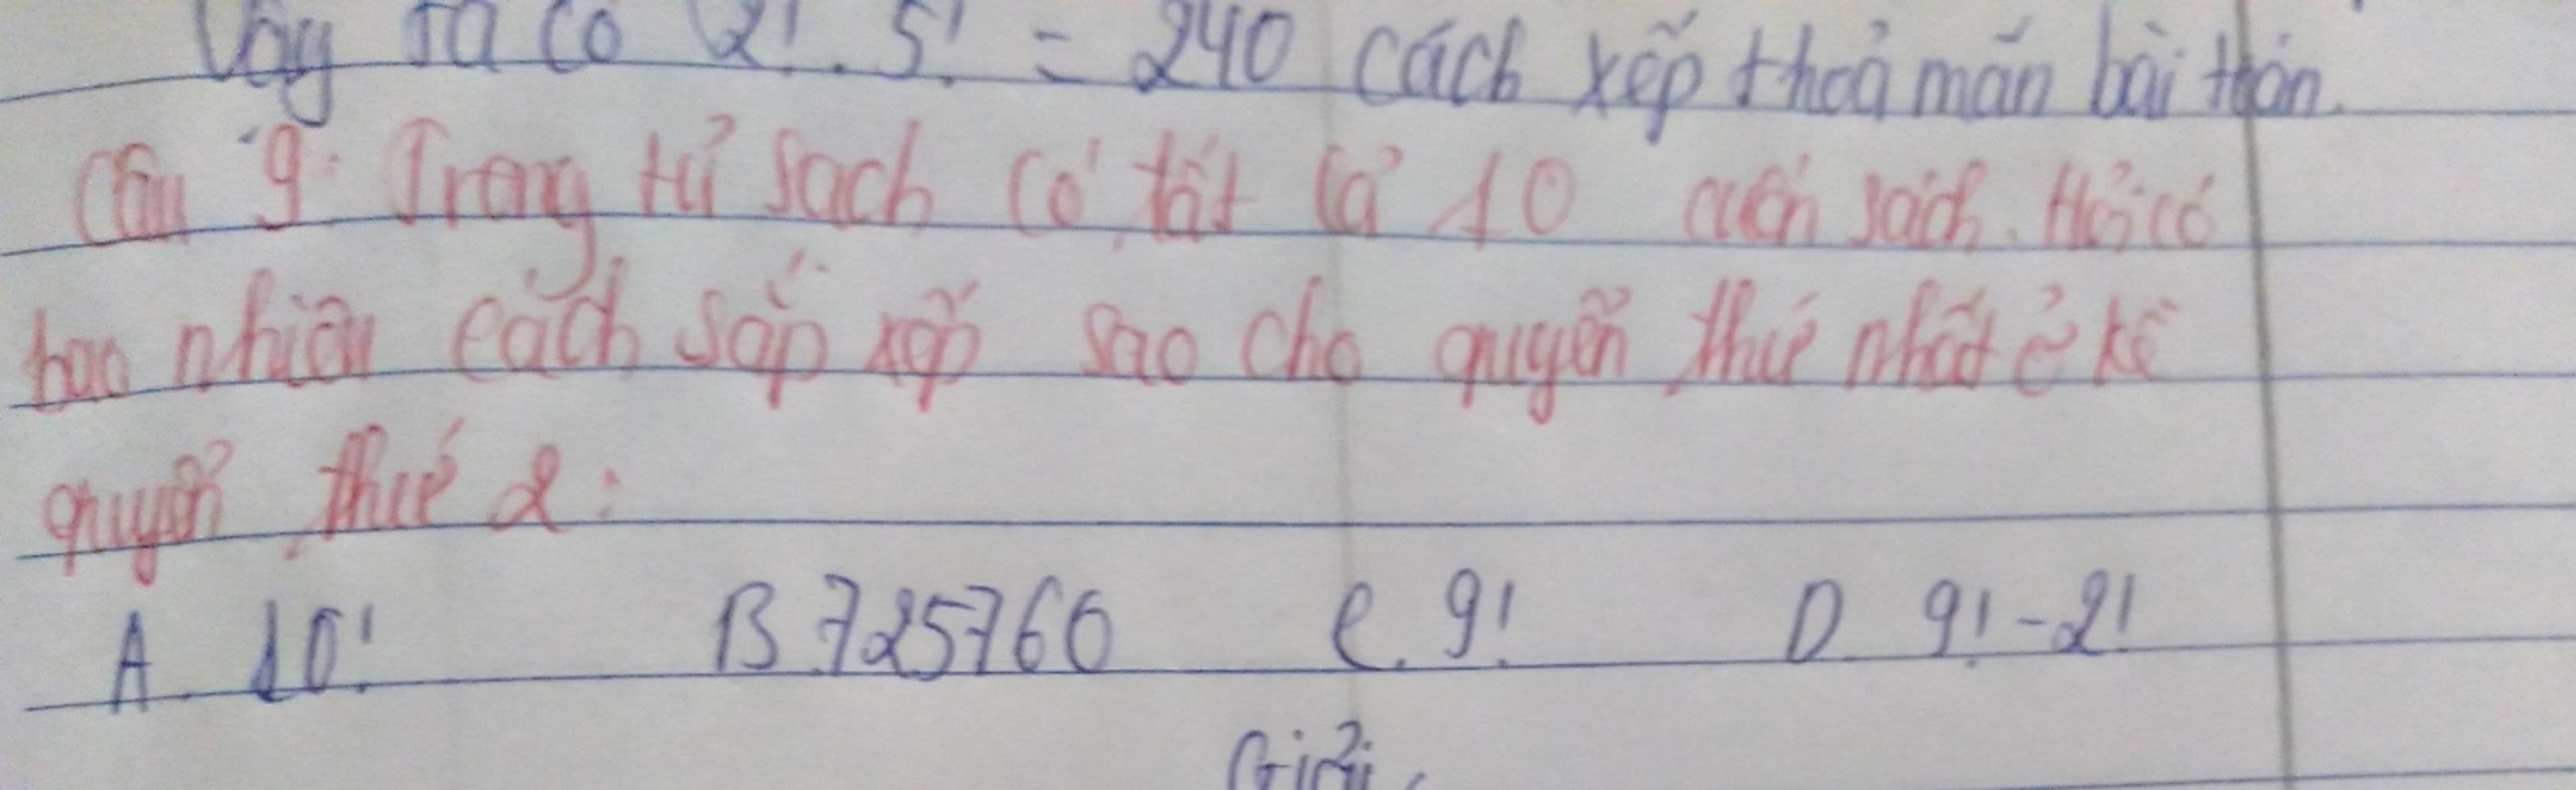 Vậy ta có 2! . 5! = 240 cách xếp thoả mãn bài toán.
Câu 9: Trong tủ sách có tất cả 10 cuốn sách. Hỏi có
bao nhiêu cách sắp xếp sao cho quyển thứ nhất ở kề
quyển thứ 2:
A. 10! B 725760 C. 9! D. 9! - 2!
Giải: